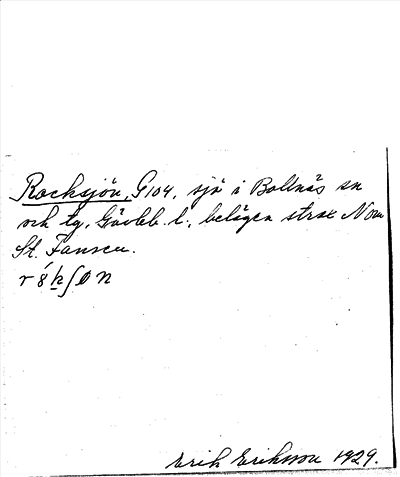 Rocksjön, G104, sjö i Bollnäs sn
och tg, Gävleb. l., belägen strax N om
St. Fansen.
Erik Eriksson 1929.